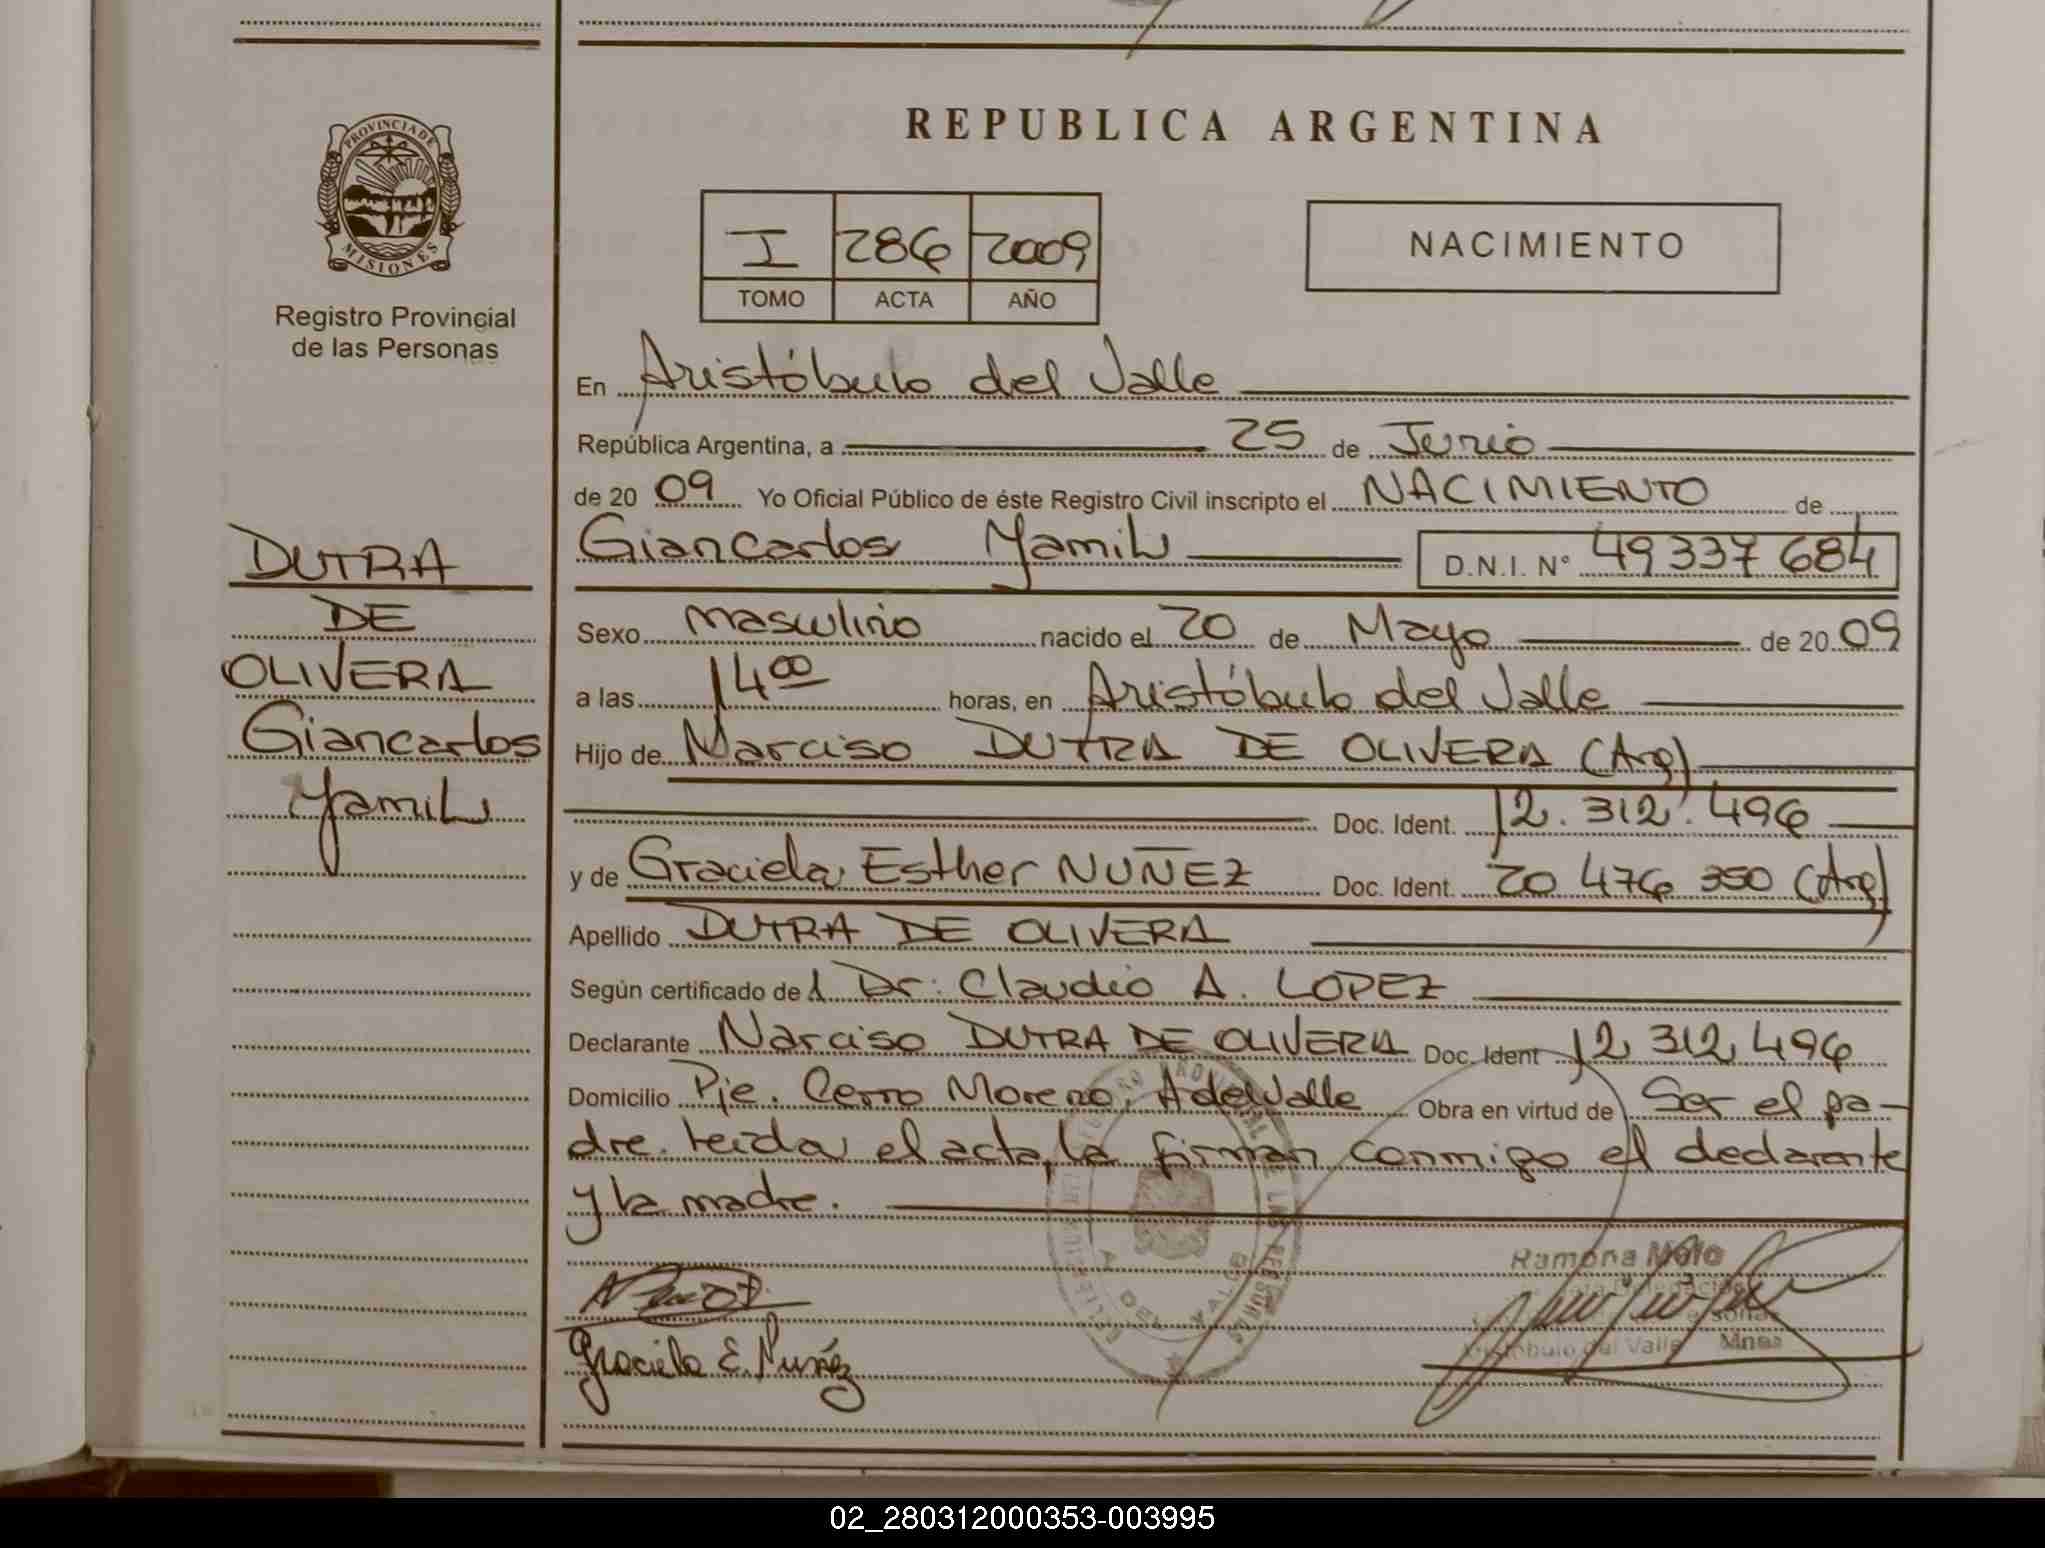 PROVINCIA DE
MISIONES
Registro Provincial
de las Personas
DUTRA
DE
OLIVERA
Giancarlos
Yamil
REPUBLICA ARGENTINA
I 286 2009
TOMO ACTA AÑO
NACIMIENTO
En Aristóbulo del Valle
República Argentina, a 25 de Junio
de 20 09 Yo Oficial Público de éste Registro Civil inscripto el NACIMIENTO de
Giancarlos Yamil D.N.I. N° 49337684
Sexo masculino nacido el 20 de Mayo de 20 09
a las 14 00 horas, en Aristóbulo del Valle
Hijo de Narciso DUTRA DE OLIVERA (Arg)
Doc. Ident. 12.312.496
y de Graciela Esther NUÑEZ Doc. Ident. 20 476 350 (Arg)
Apellido DUTRA DE OLIVERA
Según certificado del Dr. Claudio A. LOPEZ
Declarante Narciso DUTRA DE OLIVERA Doc. Ident 12 312 496
Domicilio Pje. Cerro Moreno, A del Valle Obra en virtud de Ser el pa-
dre. leida el acta, la firman conmigo el declarante
y la madre.
Ramona Melo
Valle Mnes
Graciela E. Nuñez
02_280312000353-003995